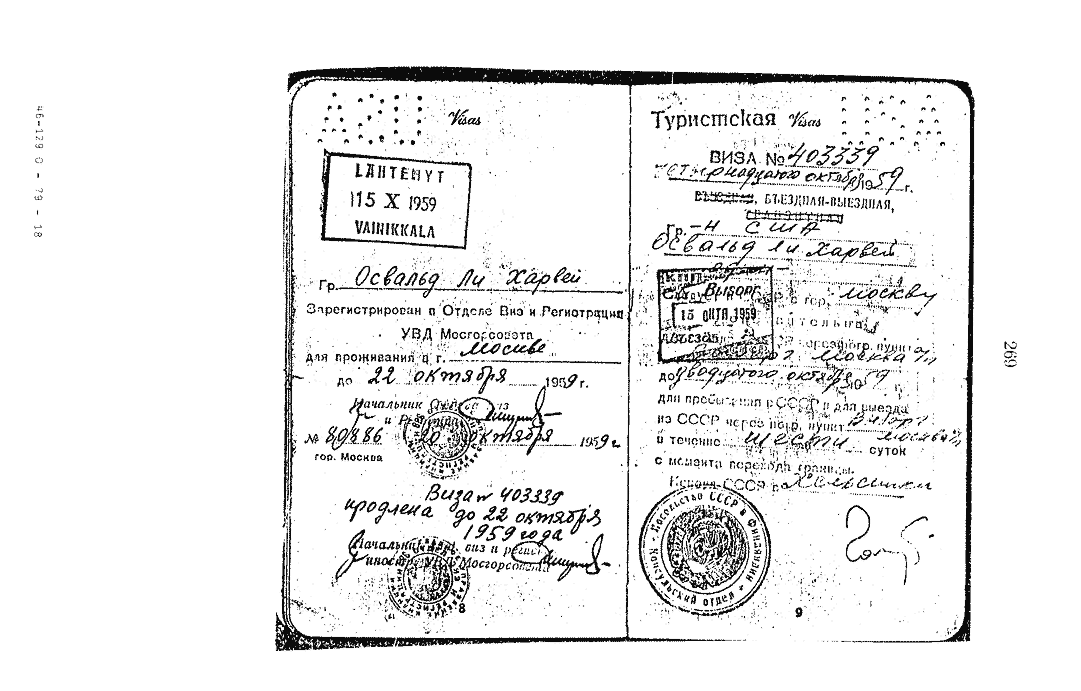 46-129 O - 79 - 18
Visas
LÄHTENYT
15 X 1959
VAINIKKALA
Гр. Освальд Ли Харвей
Зарегистрирован в Отделе Виз и Регистрации
УВД Мосгорсовета
для проживания в г. Москве
до 22 октября 1959 г.
Начальник виз
и
№ 80486 20 октября 1959 г.
гор. Москва
Виза № 403339
продлена до 22 октября
1959 года
Начальник виз и регист
иностр. УВД Мосгорсовета
8
Туристская Visas
ВИЗА № 403339
Четырнадцатого октября 1959 г.
ВЪЕЗДНАЯ, ВЪЕЗДНАЯ-ВЫЕЗДНАЯ,
ТРАНЗИТНАЯ
Гр. -н США
Освальд Ли Харвей
Выборг
в гор. Москву
15 ОКТЯ 1959
ВЪЕЗД
через погр. пункт
Москва
до двадцатого октября 1959 г.
для пребывания в СССР и для выезда
из СССР через погр. пункт Выборг
в течение шести суток
Москва
с момента перехода границы.
Консул СССР в Хельсинки
Посольство СССР в Финляндии
Консульский отдел
9
269